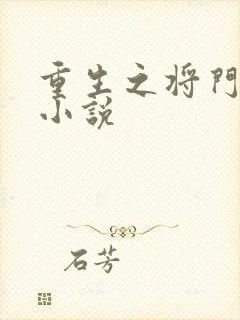 重生之将門
小説
石芳